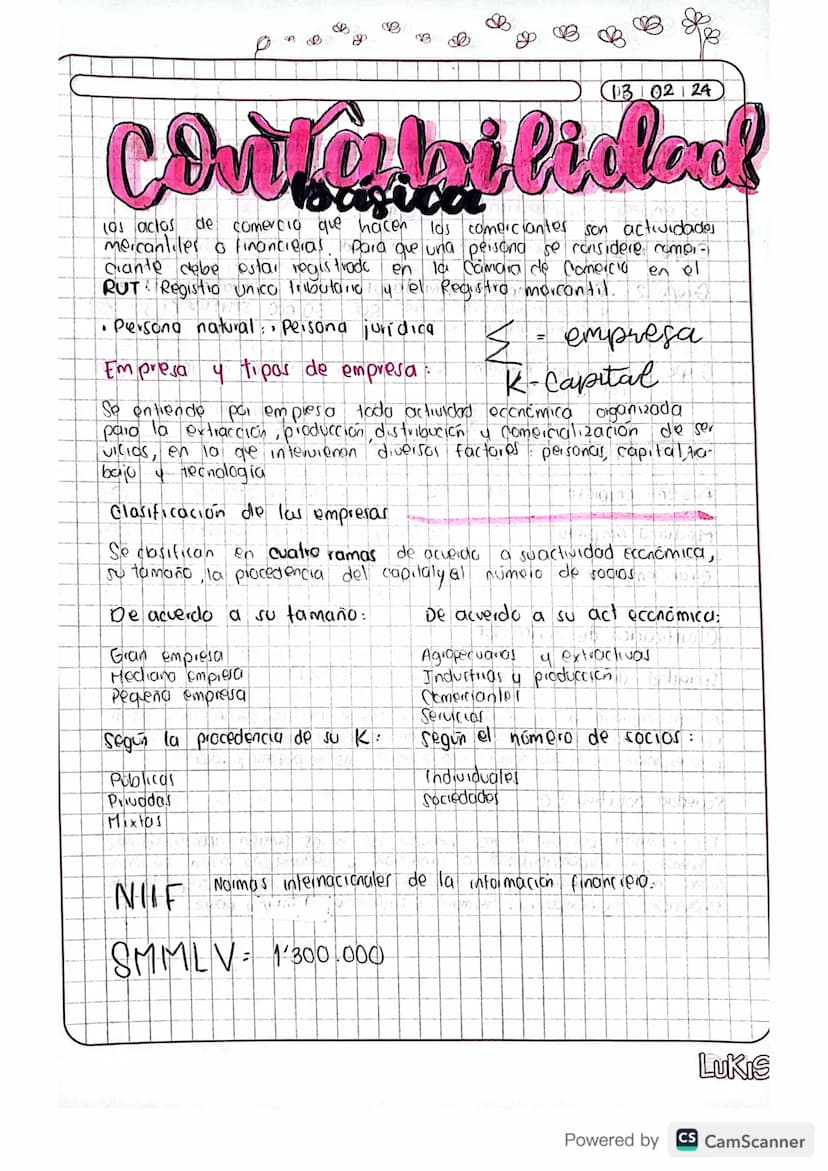 13 02 24
Contabilidad
básica
los actos de comercio que hacen los comerciantes son actividades
mercantiles o financieras. Para que una persona se considere comer-
ciante debe estar registrado en la Cámara de Comercio en el
RUT: Registro único tributario y el Registro mercantil.
• Persona natural: • Persona jurídica
Σ = empresa
K - Capital
Empresa y tipos de empresa:
Se entiende por empresa toda actividad económica organizada
para la extracción, producción, distribución y comercialización de ser
vicios, en la que intervienen diversos factores: personas, capital, tra-
bajo y tecnología
Clasificación de las empresas
Se clasifican en cuatro ramas de acuerdo a su actividad económica,
su tamaño, la procedencia del capital y al número de socios
De acuerdo a su tamaño:
Gran empresa
Mediana empresa
Pequeña empresa
De acuerdo a su act económica:
Agropecuarias y extractivas
Industrias y producción
Comerciantes
Servicios
Según la procedencia de su K:
Públicas
Privadas
Mixtas
Según el número de socios:
Individuales
Sociedades
NIIF Normas internacionales de la información financiera.
SMMLV = 1'300.000
LUKIS
Powered by CS CamScanner